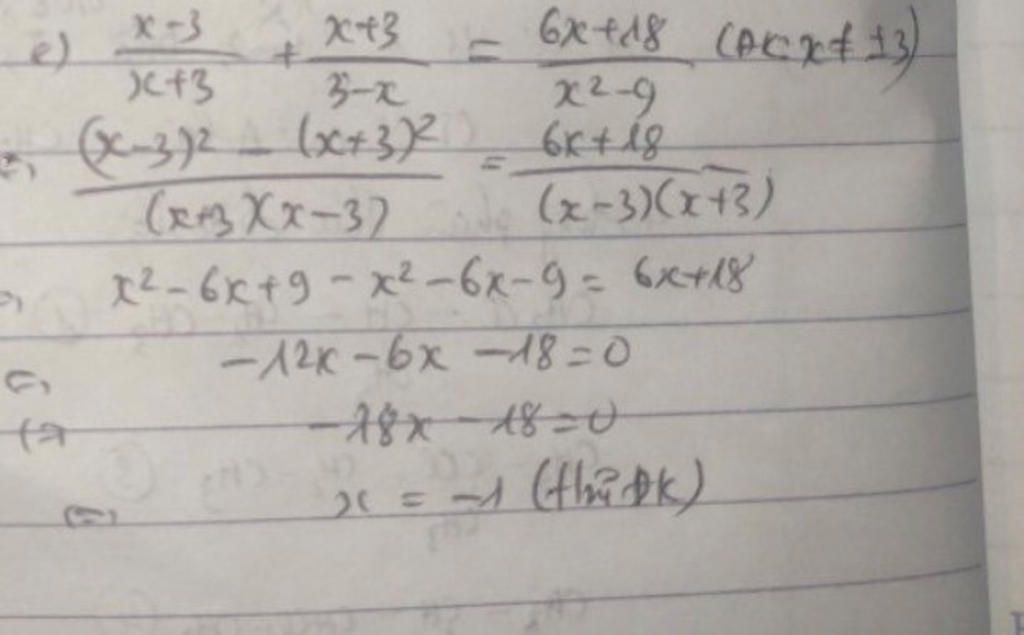 e) \frac{x-3}{x+3} + \frac{x+3}{3-x} = \frac{6x+18}{x^2-9} (ĐK: x ≠ ±3)
⇔ \frac{(x-3)^2 - (x+3)^2}{(x+3)(x-3)} = \frac{6x+18}{(x-3)(x+3)}
⇔ x^2 - 6x + 9 - x^2 - 6x - 9 = 6x + 18
⇔ -12x - 6x - 18 = 0
⇔ -18x - 18 = 0
⇔ x = -1 (thỏa ĐK)